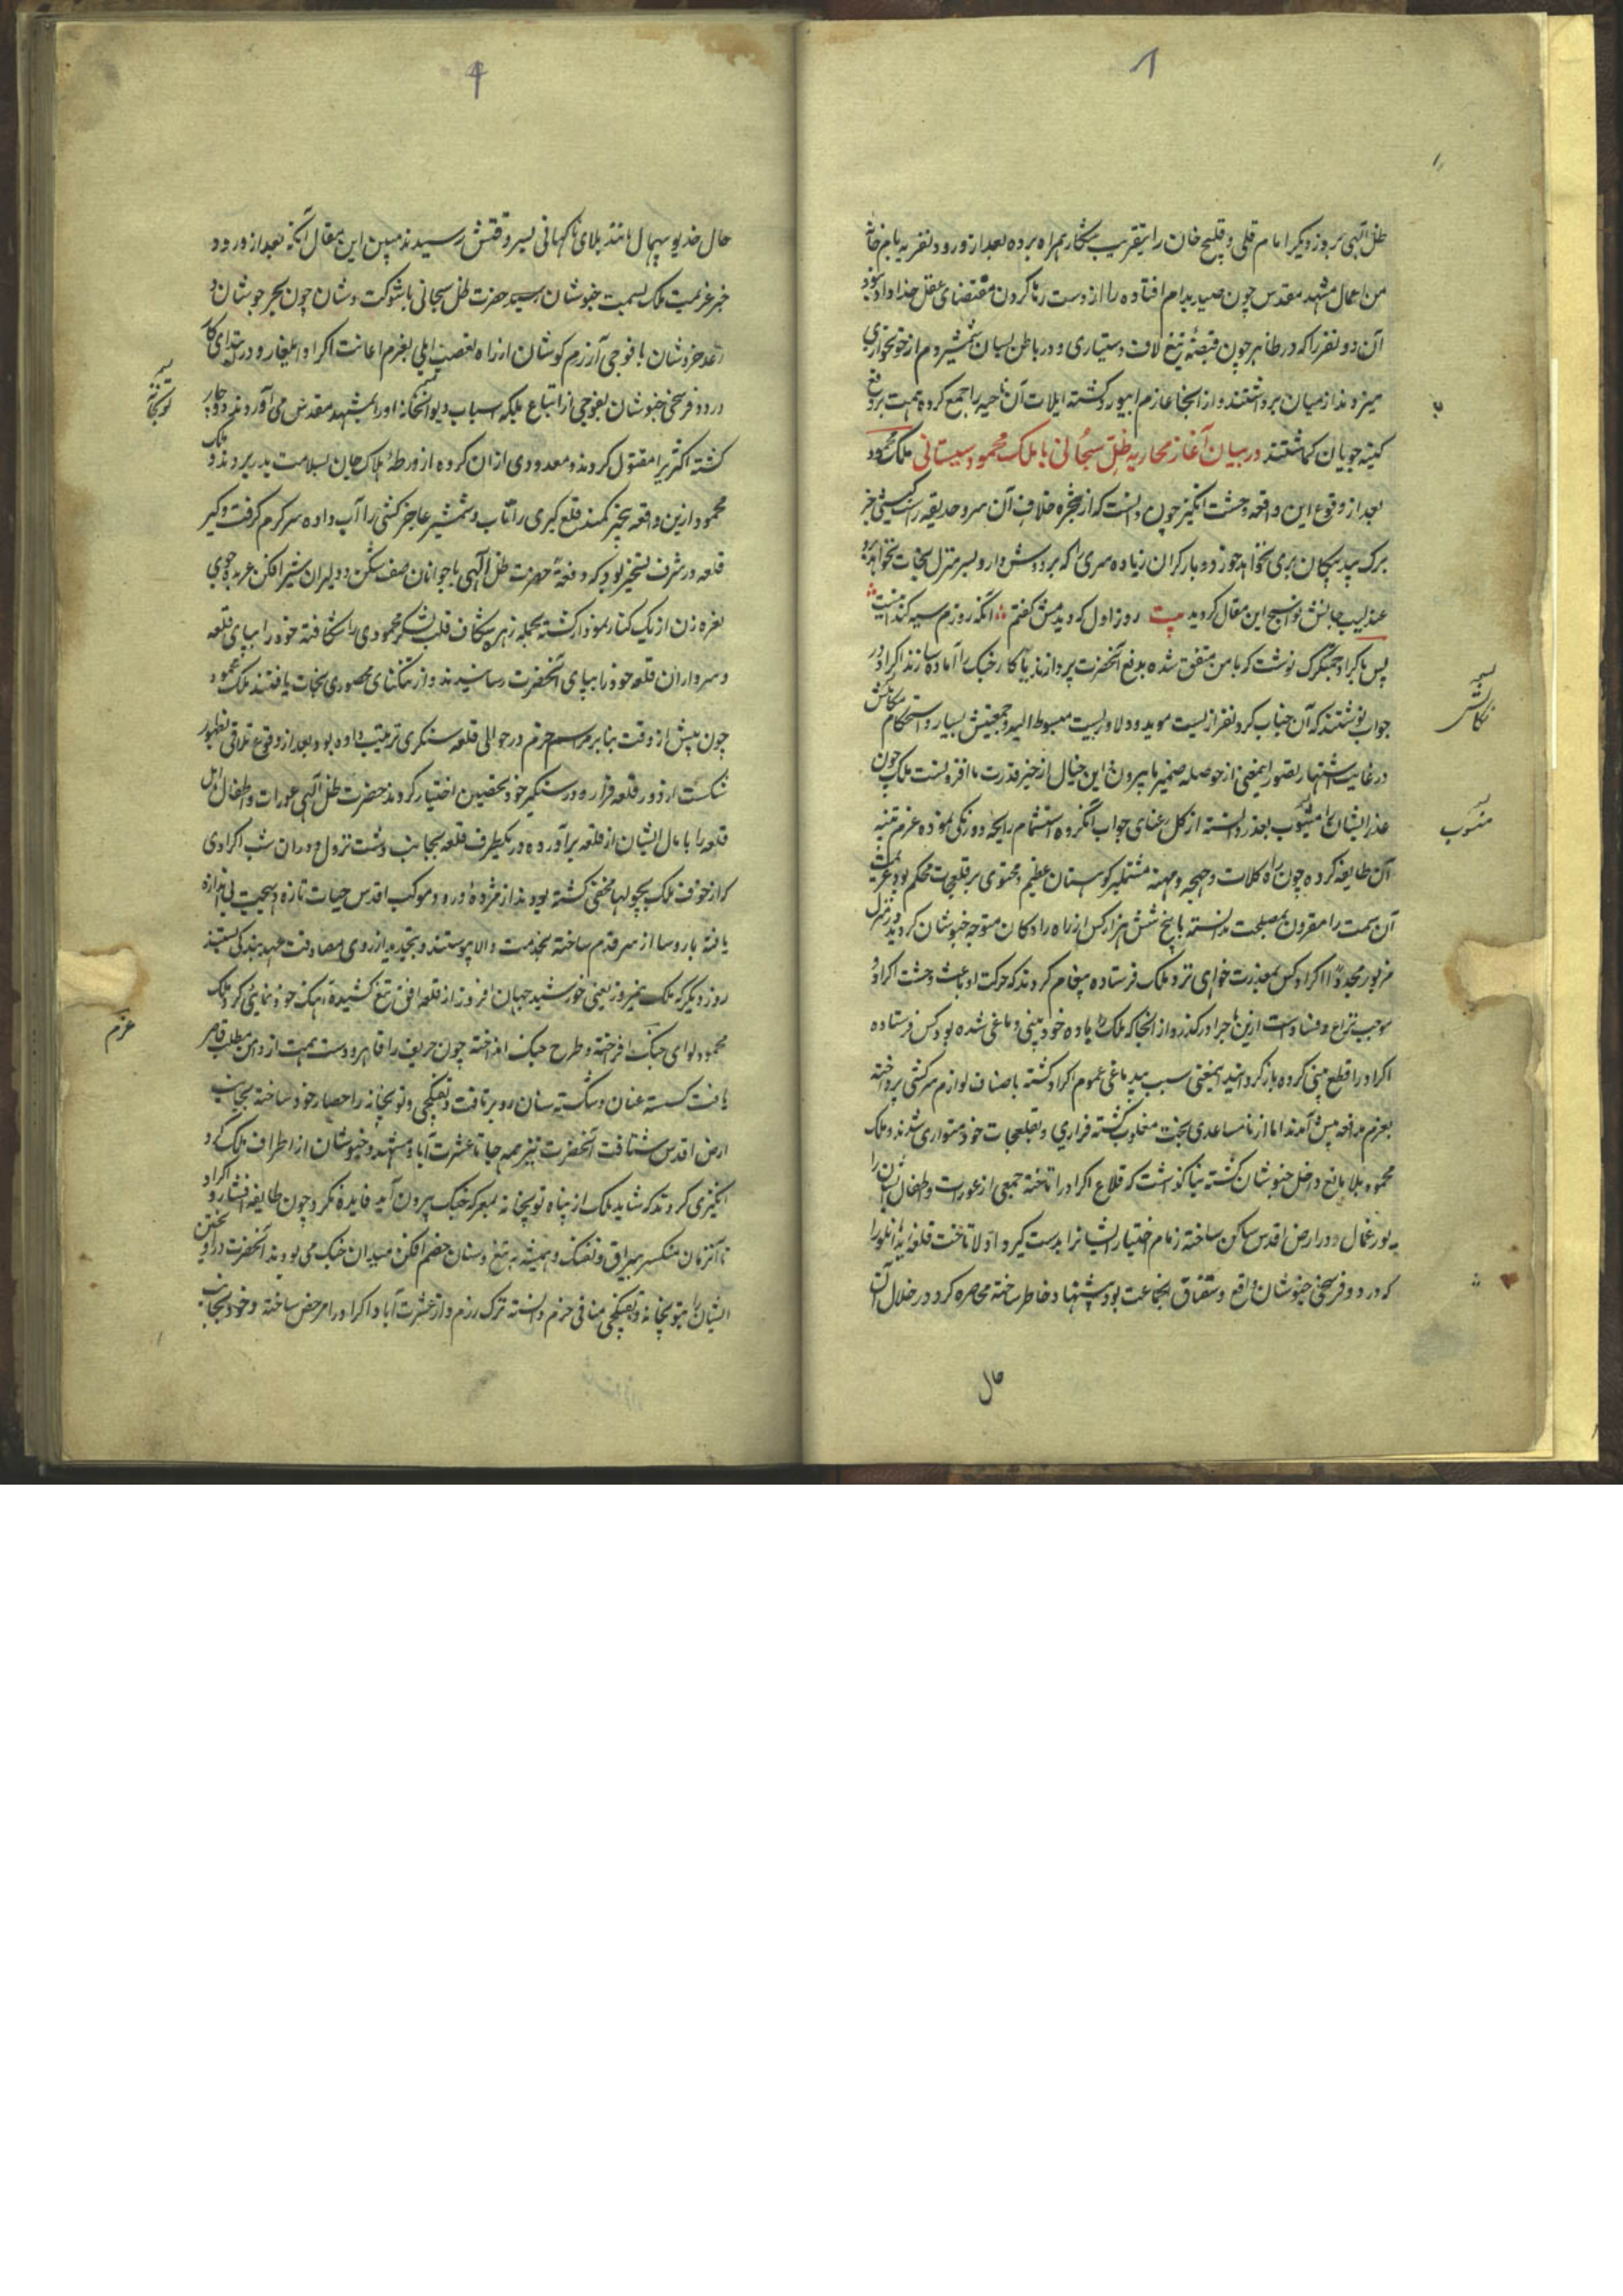 ظل الهی روز دیگر امام قلی و قلیچ خان را بتقریب شکار همراه برده بعد از ورود نفر به بام خانه
من اعمال مشهد مقدس چون صید بدام افتاده را از دست رها کردن مقتضای عقل خداداد نبود
آن دو نفر را که در ظاهر چون قبضه تیغ لاف دستیاری و در باطن بسان شمشیر دم از خونخواری
میزدند از میان برداشتند و از انجا عازم ابیورد گشته ایلات آن ناحیه را جمع کرده همت بر دفع
کینه جویان گماشتند در بیان آغاز محاربه ظل سبحانی با ملک محمود سیستانی ملک محمود
بعد از وقوع این واقعه وحشت انگیز چون دانست که از شجره خلاف آن سرو حدیقه راست کیشی جز
برک پیکان بری نخواهد جوز دو بار کران زیاده سری را که بر دوش دارد بسر منزل نجات نخواهد برد
عندلیب جانش نواسنج این مقال کردید بیت روز اول که دیدمش کفتم آنکه روزم سیه کند اینست
پس باکراد چمشکزک نوشت که با من متفق شده بدفع آنحضرت پردازند یا کار جنک را آماده سازند اکراد در
جواب نوشتند که آن جناب کرد نفر از بیست موید و دلاوریست مبسوط الید و جمعیتش بسیار و استحکام مکانش
در غایت اشتهار تصور اینمعنی از حوصله ضمیر ما بیرون و این خیال از حیز قدرت ما افزونست ملک چون
عذر ایشان را مشوب بعذر دانسته از کل رعنای جواب آنکروه استشمام رایحه دورنکی نموده عزم تنبیه
آن طایفه کرده چون راه کلات و چهچه و مهنه مشتمل بر کوهستان عظیم و محتوی بر قلعجات محکم بود عزیمت
آن سمت را مقرون بمصلحت ندانسته با پنج شش هزار کس از راه رادکان متوجه خبوشان کردید و در منزل
مزبور مجددا اکراد کس بمعذرت خواهی نزد ملک فرستاده پیغام کردند که حرکت او باعث وحشت اکراد و
موجب نزاع و فساد است ازین ماجرا درکذرد از انجا که ملک را باده خود بینی دماغی شده بود کس فرستاده
اکراد را قطع بینی کرده باز کردانید اینمعنی سبب بیدماغی عموم اکراد کشته باصناف لوازم سرکشی پرداخته
بعزم مدافعه پیش آمدند اما از نامساعدی بخت مغلوب کشته فراری و بقلعجات خود متواری شدند و ملک
محمود بلا مانع داخل خبوشان کشته بنا کذاشت که قلاع اکراد را تاخته جمعی از عورات و اطفال ایشان را
یورغمال و در ارض اقدس ساکن ساخته زمام اختیار ایشانرا بدست کیرد اولا تاخت قلعه زیدانلو را
که در دو فرسخی خبوشان واقع و سقناق انجماعت بود پیشنهاد خاطر ساخته محاصره کرد و در خلال آن
حال
نکاش
منسوب
حال خدیو بیهمال مانند بلای ناکهانی بسر وقتش رسیدند مبین این مقال آنکه بعد از ورود
خبر عزیمت ملک بسمت خبوشان بسیر حضرت ظل سبحانی با شوکت و شان چون بحر جوشان و
رعد خروشان با فوجی آرزم کوشان از راه تعصب ایلی بعزم اعانت اکراد ایلغار و در ابتدای کار
در دو فرسخی خبوشان بفوجی از اتباع ملک که اسباب دیوانخانه او را بمشهد مقدس می آوردند دوچار
کشته اکثریرا مقتول کردند و معدودی از ان کروه از ورطه هلاک جان بسلامت بدر بردند و ملک
محمود ازین واقعه بیخبر کمند قلع کیری را تاب و شمشیر عاجز کشی را آب داده سرکرم کرفت و کیر
قلعه در شرف تسخیر بود که دفعة حضرت ظل الهی با جوانان صف شکن و دلیران شیر افکن عربده جوی
نعره زن از یک کنار نمودار کشته بحمله زهره شکاف قلب لشکر محمودی را شکافته خود را بپای قلعه
و سرداران قلعه خود را بپای آنحضرت رسانیدند و از تنکنای محصوری نجات یافتند ملک محمود
چون پیش از وقت بنابر مراسم حزم در حوالی قلعه سنکری ترتیب داده بود بعد از وقوع تلاقی و ظهور
شکست از دور قلعه فرار و در سنکر خود تحصین اختیار کردند حضرت ظل الهی عورات و اطفال اهل
قلعه را با مال ایشان از قلعه برآورده در یکطرف قلعه بجانب دشت نزول و در ان شب اکرادی
که از خوف ملک بچولها مخفی کشته بودند از مژده ورود موکب اقدس حیات تازه و بهجت بی اندازه
یافته با روسا از سر قدم ساخته بخدمت والا پیوستند و بتجدید از روی مصادقت عهد بندکی بستند
روز دیکر که ملک نیمروز یعنی خورشید جهان افروز از قلعه افق تیغ کشیده آهنک خود نمایی کرد ملک
محمود لوای جنک افرخته و طرح جنک انداخته چون حریف را قاهر و دست همت از دامن مطلب قاصر
یافت کسسته عنان و شکسته سنان رو برتافت و تفنکچی و توپخانه را حصار خود ساخته بجانب
ارض اقدس شتافت آنحضرت نیز همه جا تا عشرت آباد مشهد و خبوشان از اطراف ملک کرد
انکیزی کردند که شاید ملک از پناه توپخانه بمعرکه جنک بیرون آید فایده نکرد و چون طایفه افشار و اکراد
تا آنزمان منکسر یراق و تفنک و همیشه به تیغ و سنان خصم افکن میدان جنک می بودند آنحضرت در آویختن
ایشان را بتوپخانه و تفنکچی منافی حزم دانسته ترک رزم و از عشرت آباد اکراد را مرخص ساخته و خود بجانب
توپخانه
عزم